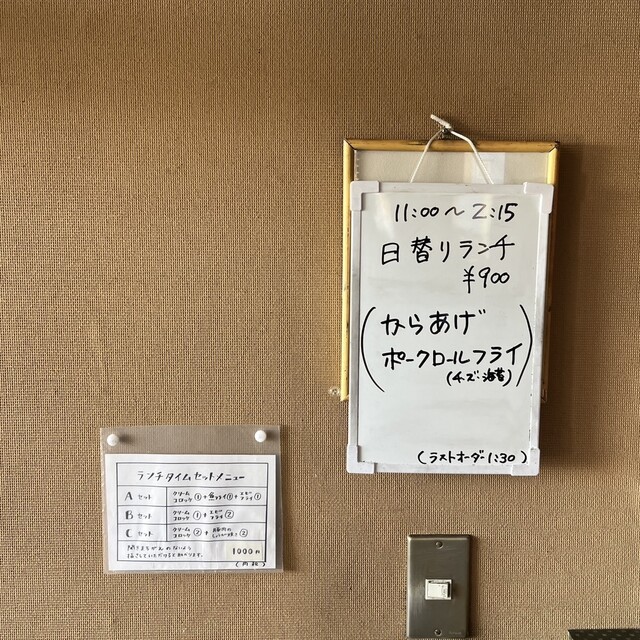 11:00～2:15
日替りランチ
¥900
(からあげ
ポークロールフライ
(チーズ・海苔))
(ラストオーダー1:30)
ランチタイムセットメニュー
Aセット クリームコロッケ①+魚フライ①+エビフライ①
Bセット クリームコロッケ①+エビフライ②
Cセット クリームコロッケ②+
1000円